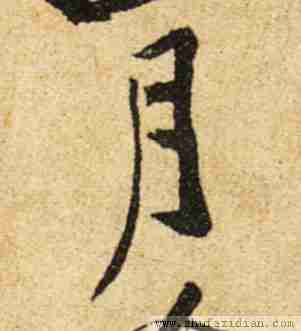 月
www.shufazidian.com